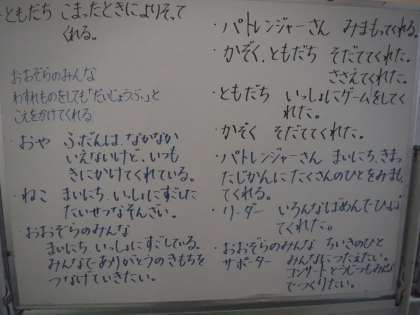 ・ともだち こまったときによりそって
くれる。
おおぞらのみんな
わすれものをしても「だいじょうぶ」と
こえをかけてくれる
・おや ふだんは、なかなか
いえないけど、いつも
きにかけてくれている。
・ねこ まいにち、いっしょにすごした
たいせつなそんざい。
・おおぞらのみんな
まいにち いっしょにすごしている。
みんなでありがとうのきもちを
つなげていきたい。
・パトレンジャーさん みまもってくれる。
・かぞく、ともだち そだててくれた。
ささえてくれた。
・ともだち いっしょにゲームをしてく
れた。
・かぞく そだててくれた。
・パトレンジャーさん まいにち、きまっ
たじかんにたくさんのひとをみまも
てくれる。
・リーダー いろんなばめんで
てくれた。
・おおぞらのみんな ちいきのひと
サポーター みんなにつたえたい。
コンサートとうじつもみんな
でつくりたい。